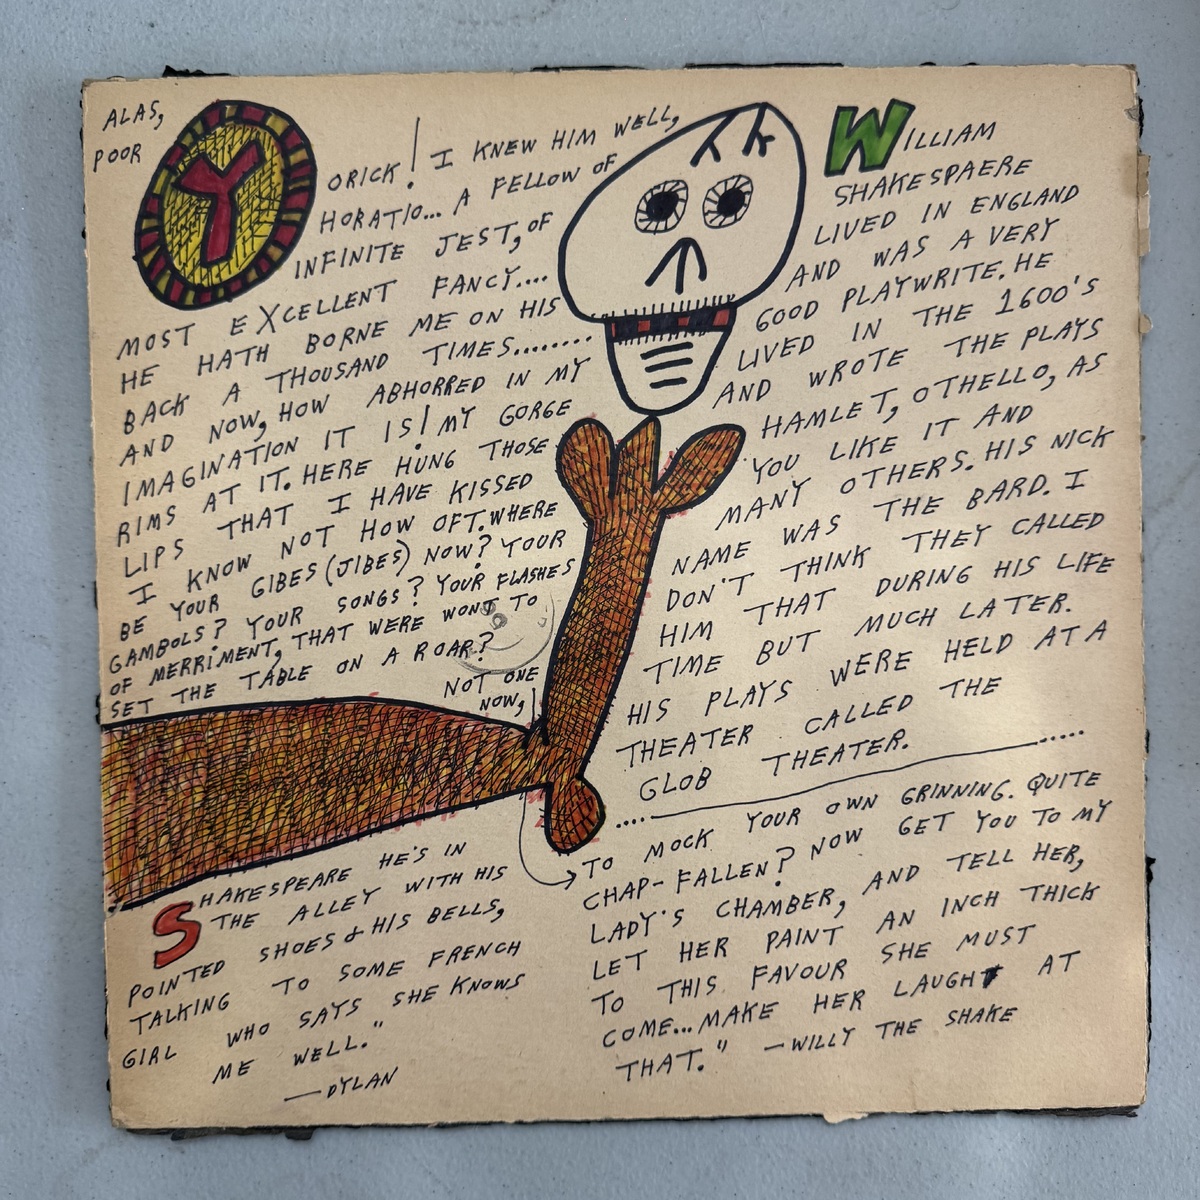 ALAS,
POOR
YORICK! I KNEW HIM WELL,
HORATIO... A FELLOW OF
INFINITE JEST, OF
MOST EXCELLENT FANCY....
HE HATH BORNE ME ON HIS
BACK A THOUSAND TIMES........
AND NOW, HOW ABHORRED IN MY
IMAGINATION IT IS! MY GORGE
RIMS AT IT. HERE HUNG THOSE
LIPS THAT I HAVE KISSED
I KNOW NOT HOW OFT. WHERE
BE YOUR GIBES (JIBES) NOW? YOUR
GAMBOLS? YOUR SONGS? YOUR FLASHES
OF MERRIMENT, THAT WERE WONT TO
SET THE TABLE ON A ROAR?
NOT ONE
NOW,
TO MOCK YOUR OWN GRINNING. QUITE
CHAP-FALLEN? NOW GET YOU TO MY
LADY'S CHAMBER, AND TELL HER,
LET HER PAINT AN INCH THICK
TO THIS FAVOUR SHE MUST
COME... MAKE HER LAUGH AT
THAT." —WILLY THE SHAKE
WILLIAM
SHAKESPAERE
LIVED IN ENGLAND
AND WAS A VERY
GOOD PLAYWRITE. HE
LIVED IN THE 1600'S
AND WROTE THE PLAYS
HAMLET, OTHELLO, AS
YOU LIKE IT AND
MANY OTHERS. HIS NICK
NAME WAS THE BARD. I
DON'T THINK THEY CALLED
HIM THAT DURING HIS LIFE
TIME BUT MUCH LATER.
HIS PLAYS WERE HELD AT A
THEATER CALLED THE
GLOB THEATER.
SHAKESPEARE HE'S IN
THE ALLEY WITH HIS
POINTED SHOES & HIS BELLS,
TALKING TO SOME FRENCH
GIRL WHO SAYS SHE KNOWS
ME WELL."
—DYLAN